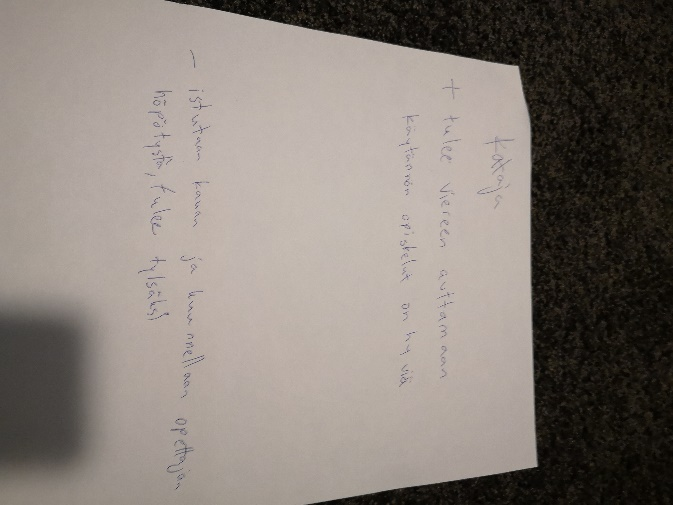 Kataja
+ tulee viereen auttamaan
käytännön opiskelut on hyviä
- istutaan kauan ja kuunnellaan opettajan
höpötystä, tulee tylsäksi